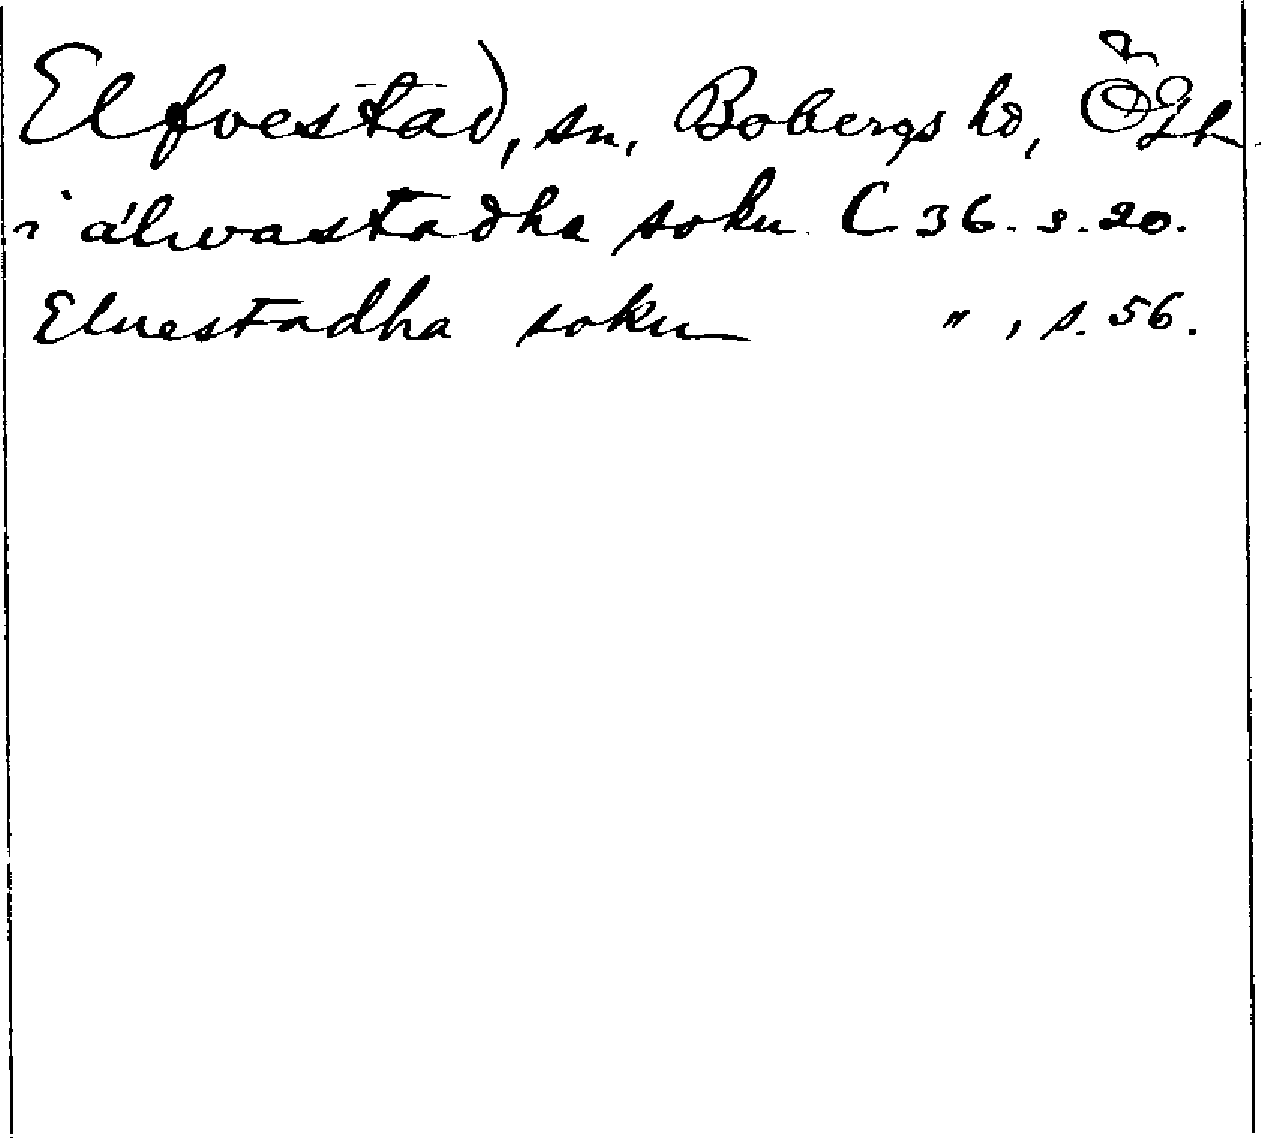 Elfvestad, sn, Bobergs hd, Ögl.
i álwastadha sokn C 36. s. 20.
Eluestadha sokn " , s. 56.